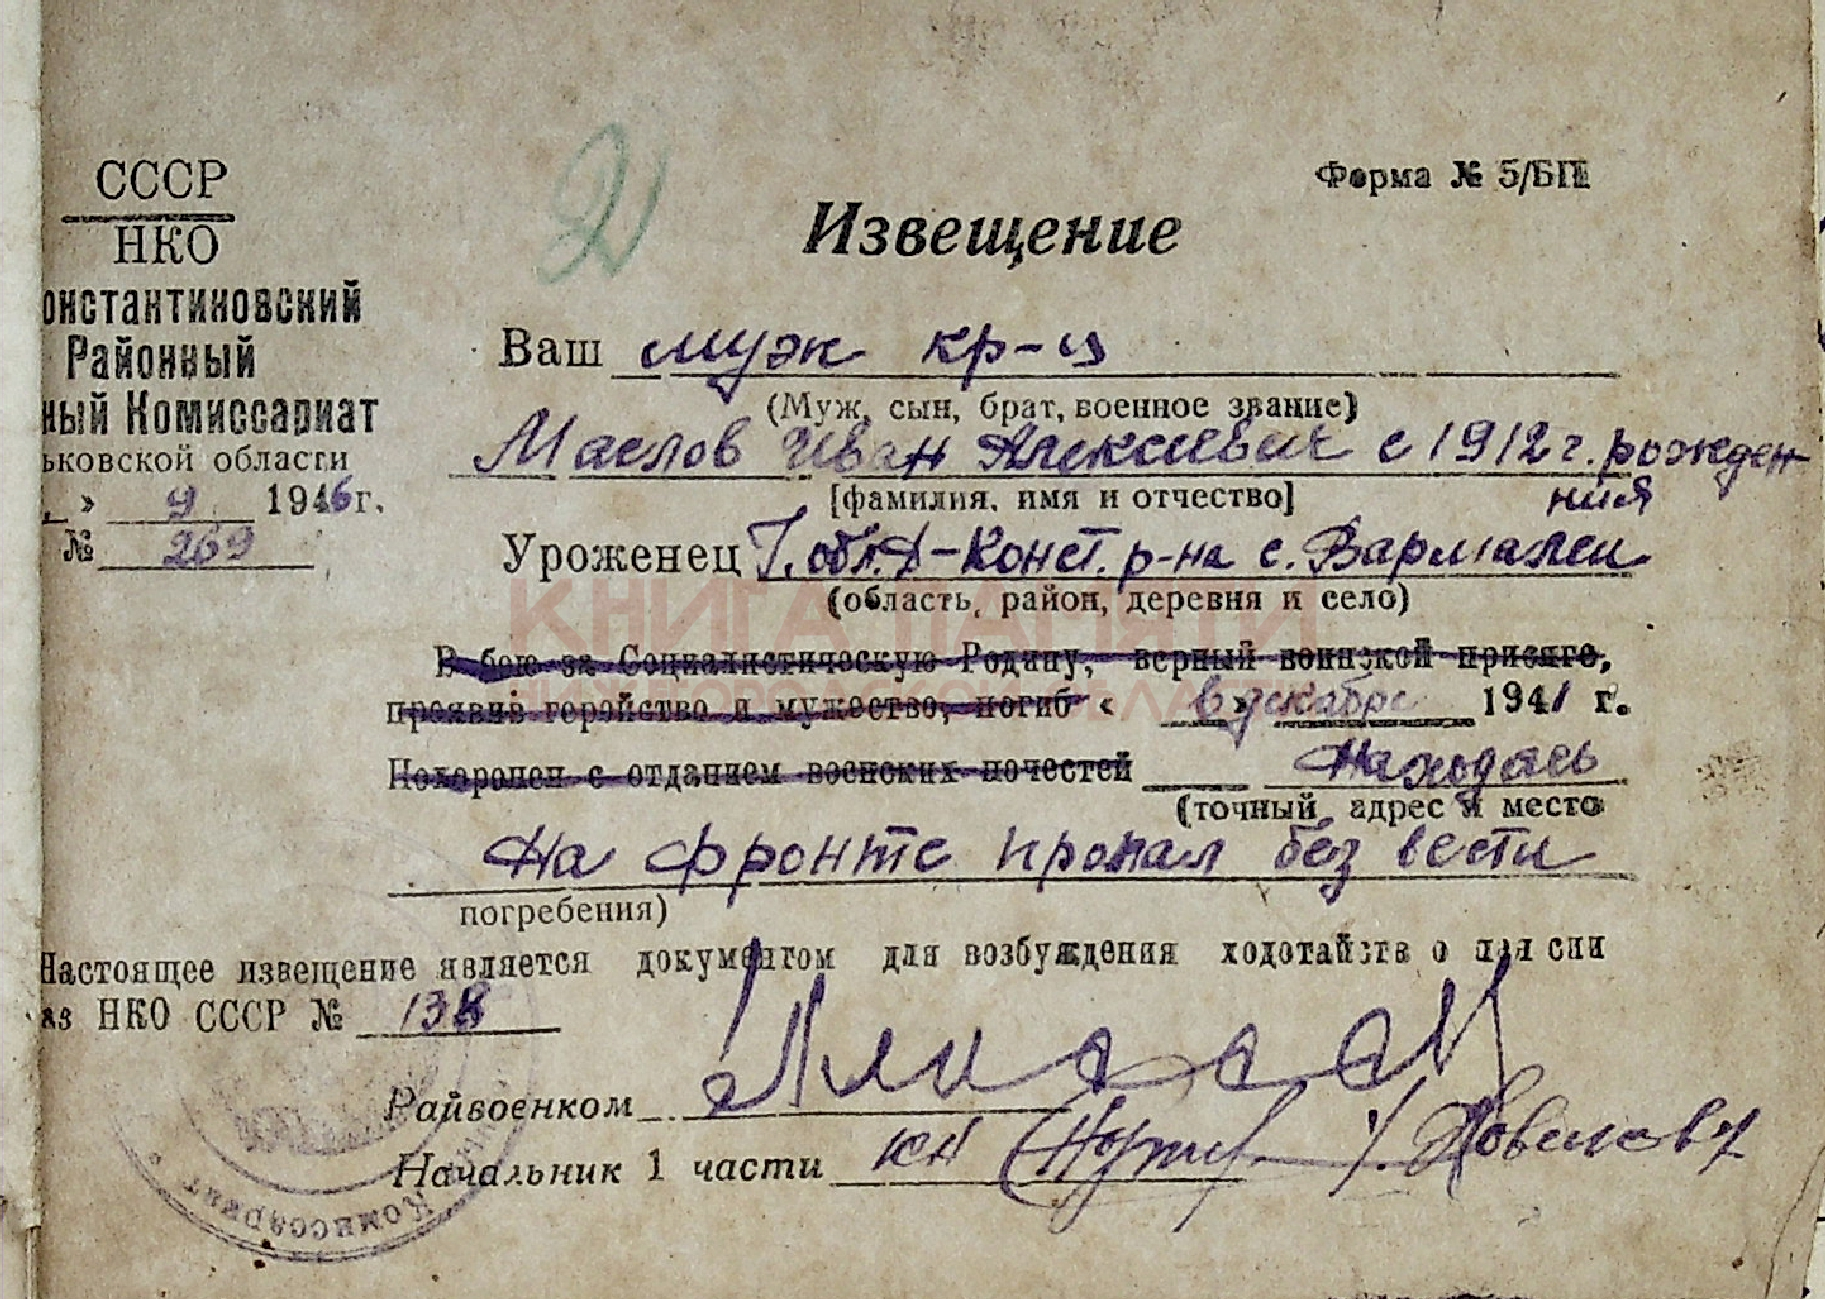 СССР
НКО
онстантиновский
Районный
ный Комиссариат
ьковской области
» 9 1946 г.
№ 269
Форма № 5/БП
Извещение
Ваш муж кр-ц
(Муж, сын, брат, военное звание)
Маслов Иван Алексеевич с 1912 г. рожден
ния
[фамилия, имя и отчество]
Уроженец Г. обл. Д-Конст. р-на с. Вармалеи
(область, район, деревня и село)
КНИГА ПАМЯТИ
НИЖЕГОРОДСКОЙ ОБЛАСТИ
В бою за Социалистическую Родину, верный воинской присяге,
проявив геройство и мужество, погиб « в » декабре 1941 г.
Похоронен с отданием воинских почестей Находясь
(точный адрес и место
На фронте пропал без вести
погребения)
Настоящее извещение является документом для возбуждения ходотайств о пен сии
аз НКО СССР № 138
Райвоенком
Начальник 1 части
Комиссариат